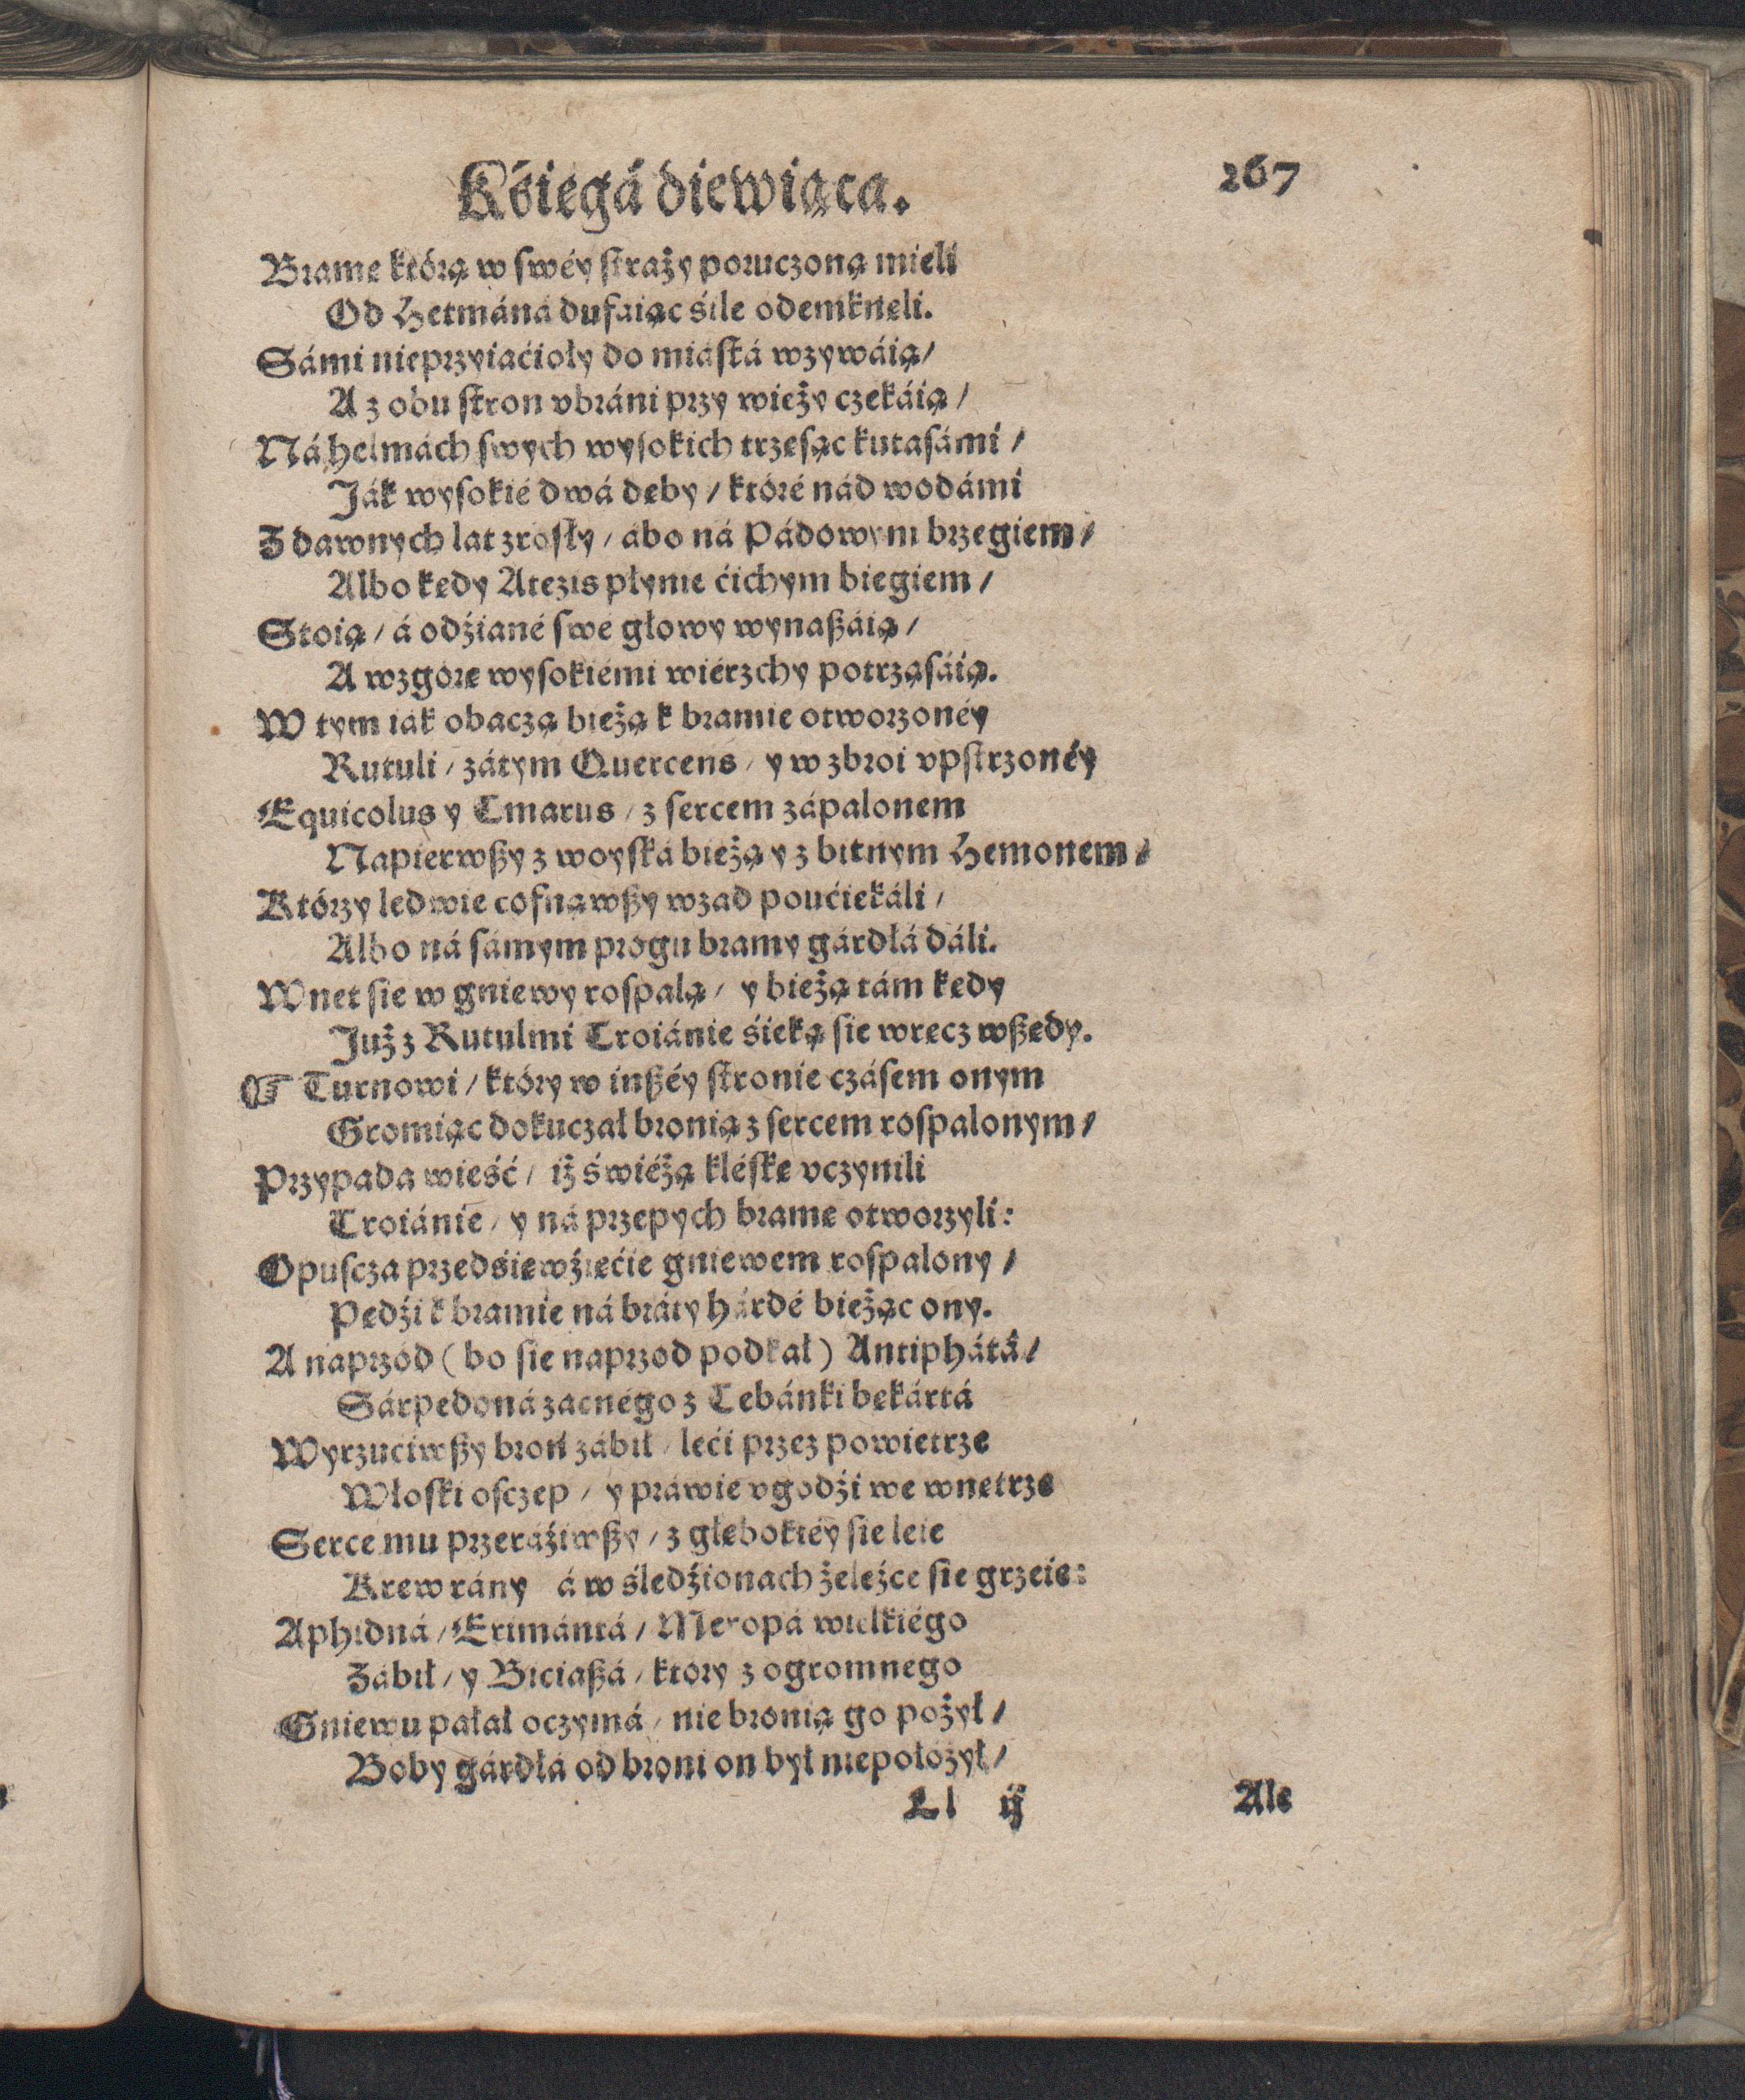 Kśięgá diewiąca. 267
Bramę którą w swéy straży poruczoną mieli
Od Hetmáná dufáiąc śile odemknęli.
Sámi nieprzyiaćioły do miástá wzywáią/
A z obu stron vbráni przy wieży czekáią/
Ná helmách swych wysokich trzęsąc kutasámi/
Ják wysokié dwá dęby/ któré nád wodámi
Z dawnych lat zrosły/ ábo ná Pádowym brzegiem/
Albo kędy Atezis płynie ćichym biegiem/
Stoią/ á odźiané swe głowy wynaszáią/
A wzgórę wysokiémi wiérzchy potrząsáią.
W tym iák obaczą bieżą k bramie otworzonéy
Rutuli/ zátym Quercens/ y w zbroi vpstrzonéy
Equicolus y Tmarus/ z sercem zápalonem
Napierwszy z woyská bieżą y z bitnym Hemonem/
Którzy ledwie cofnąwszy wzad poućiekáli/
Albo ná sámym progu bramy gárdłá dáli.
Wnet sie w gniewy rospalą/ y bieżą tám kędy
Już z Rutulmi Troiánie śieką sie wręcz wszędy.
☞ Turnowi/ który w inszéy stronie czásem onym
Gromiąc dokuczał bronią z sercem rospalonym/
Przypada wieść/ iż świéżą kléskę vczynili
Troiánie/ y ná przepych bramę otworzyli:
Opuscza przedśiewźięćie gniewem rospalony/
Pędźi k bramie ná bráty hárdé bieżąc ony.
A naprzód (bo sie naprzod podkał) Antiphátá/
Sárpedoná zacnégo z Tebánki bękártá
Wyrzuciwszy broń zábił/ leći przez powietrze
Włoski osczep/ y práwie vgodźi we wnętrze
Serce mu przeráźiwszy/ z głębokiéy sie leie
Krew rány á w śledźionach żeleźce sie grzeie:
Aphidná/ Erimántá/ Meropá wielkiégo
Zábił/ y Biciaszá/ który z ogromnego
Gniewu pałał oczymá/ nie bronią go pożył/
Boby gárdłá od broni on był niepołożył/
Ll ij Ale